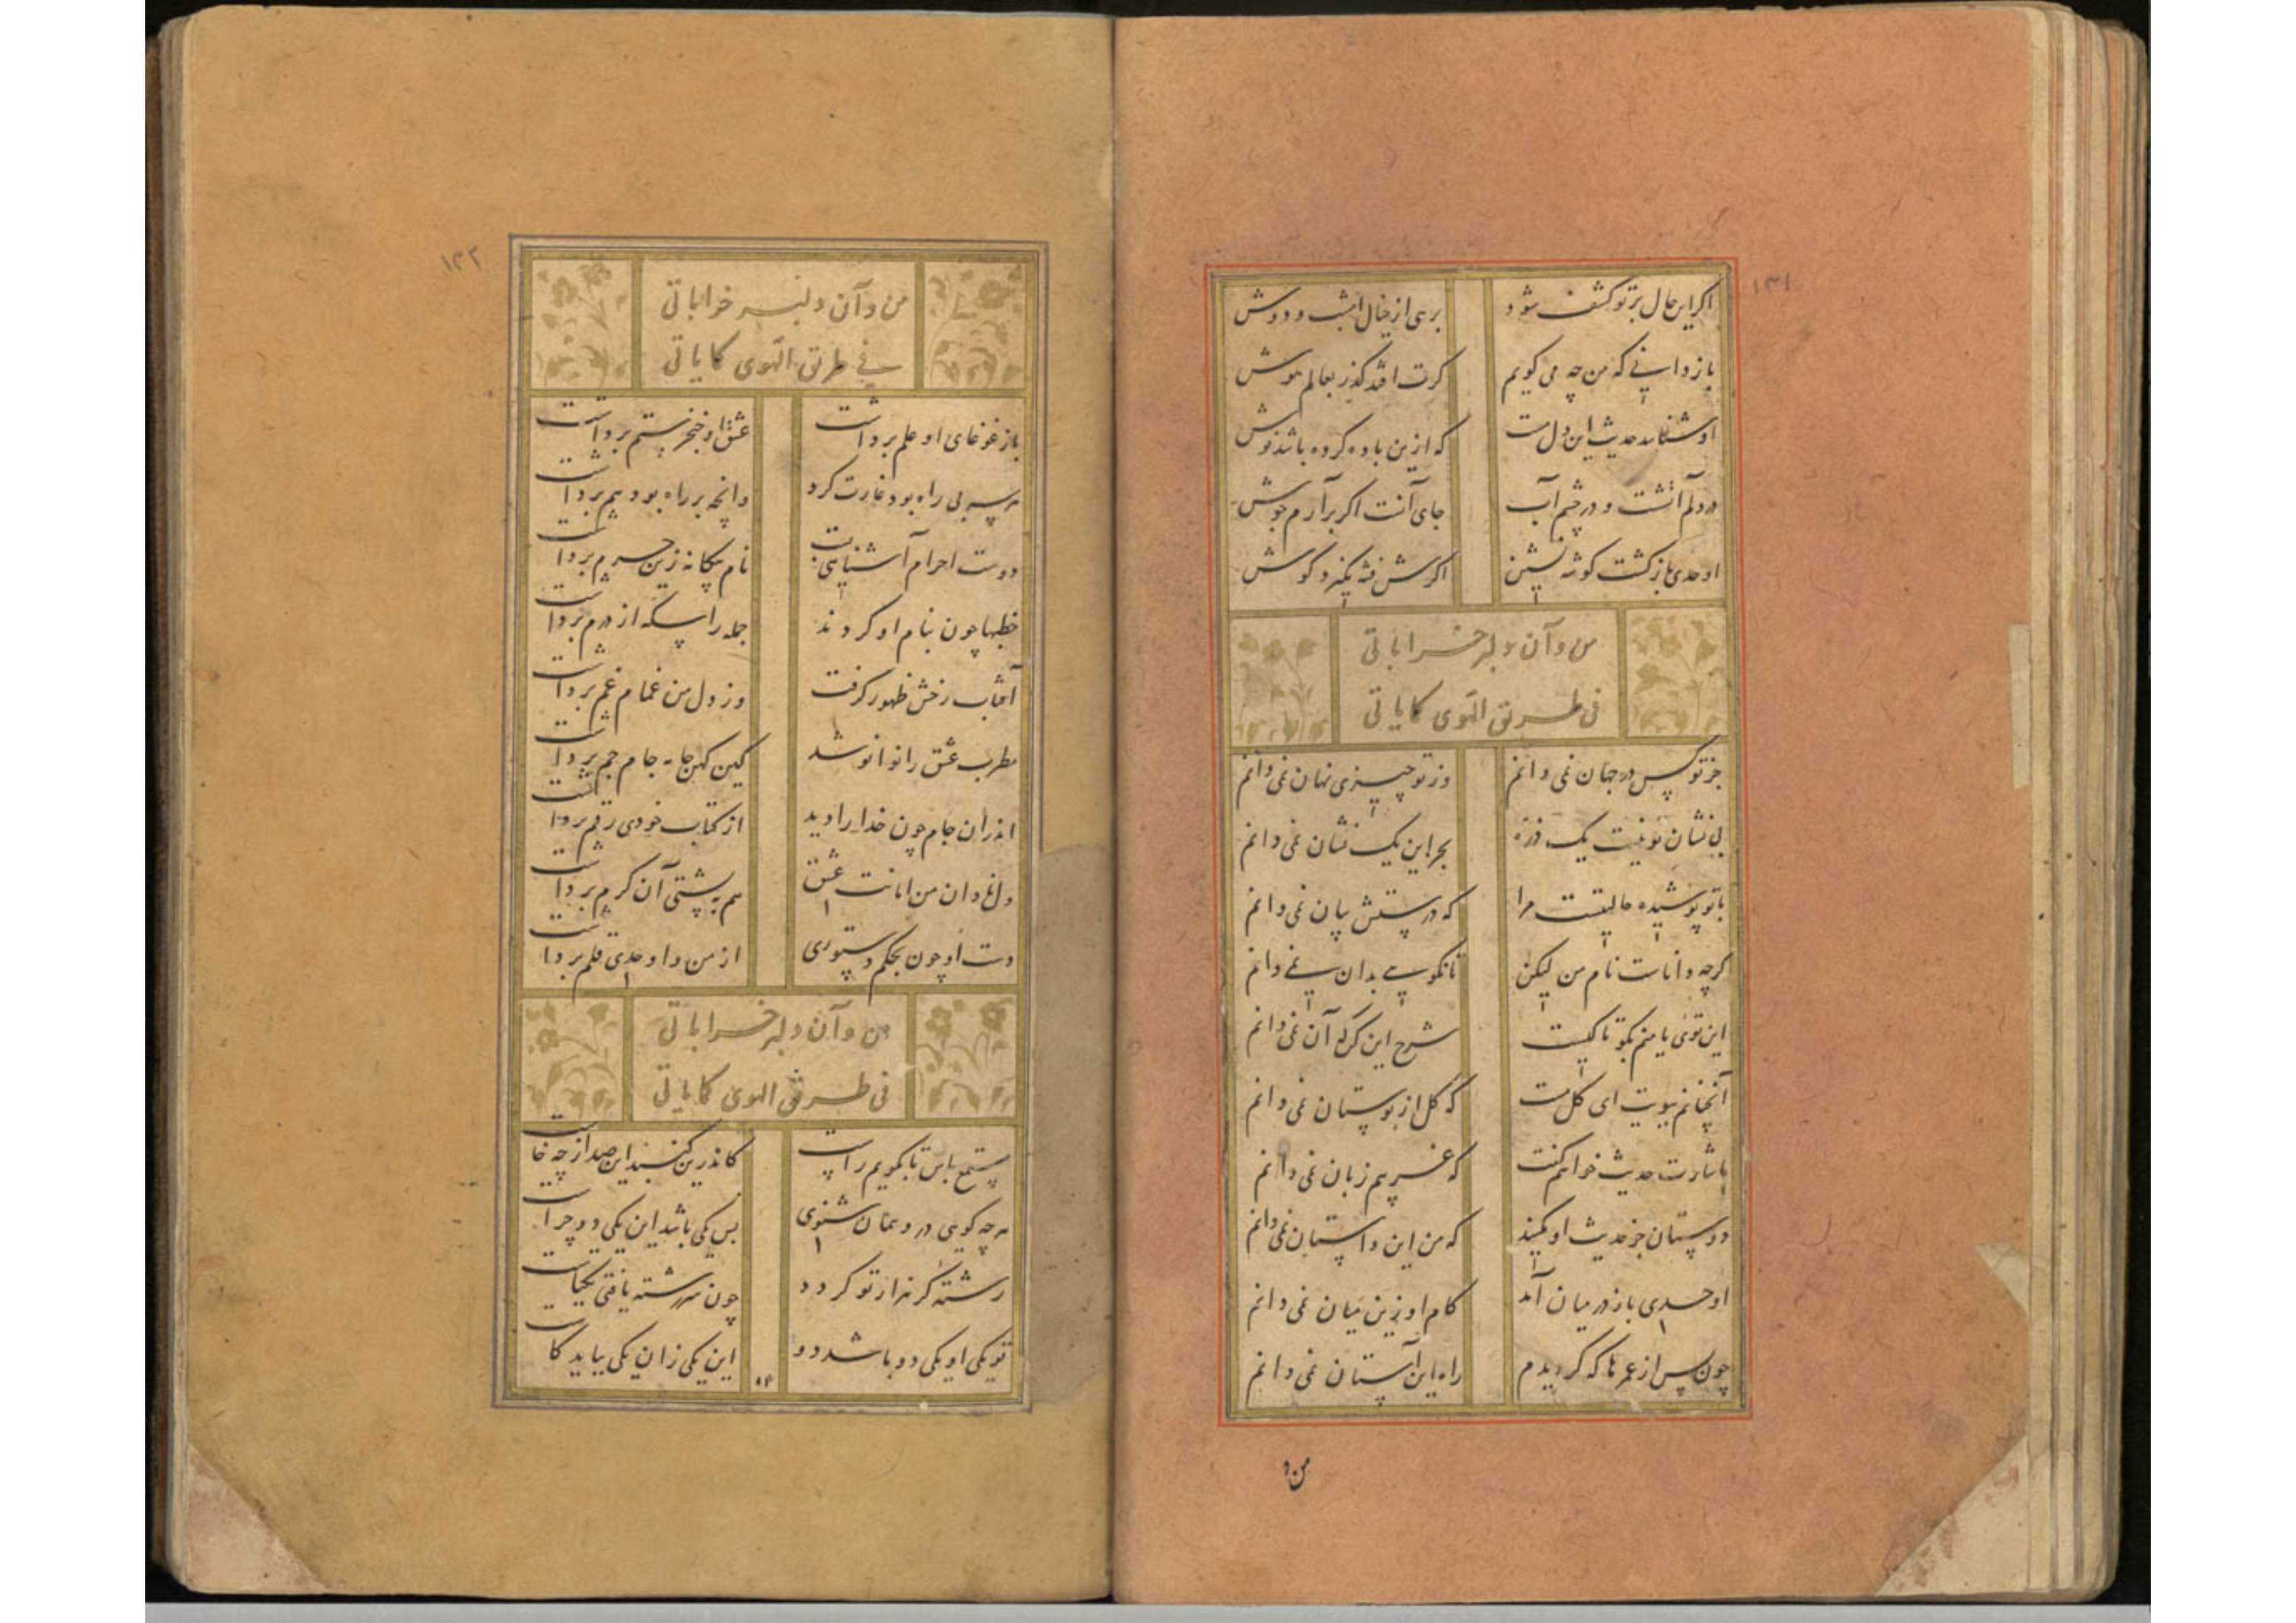 ۱۳۱
اگر این حال بر تو کشف شود برهی از خیال امشب و دوش
باز دانی که من چه می گویم گرت افتد گذر بعالم هوش
او شناسد حدیث این دل مست که ازین باده کرده باشد نوش
در دلم آتشست و در چشم آب جای آنست اگر برآرم جوش
اوحدی باز گشت گوشه نشین اگرش فتنه نگیرد گوش
من و آن دلبر خراباتی
فی طریق الهوی کما یاتی
جز تو کس در جهان نمی دانم وز تو چیزی نهان نمی دانم
بی نشان تو نیست یک ذره بجز این یک نشان نمی دانم
با تو پوشیده حالیست مرا که درستش بیان نمی دانم
گرچه داناست نام من لیکن تا نگویی بدان نمی دانم
این توی یا منم بگو تا کیست شرح این کن که آن نمی دانم
آنچنانم ببویت ای گل مست که گل از بوستان نمی دانم
باشارت حدیث خواهم گفت که غریبم زبان نمی دانم
دوستان جز حدیث او مکنید که من این داستان نمی دانم
اوحدی باز در میان آمد کام او زین میان نمی دانم
چون پس از عمرها که گردیدم راه این آستان نمی دانم
من و
۱۳۲
من و آن دلبر خراباتی
فی طریق الهوی کما یاتی
باز غوغای او علم برداشت عشق او خنجر ستم برداشت
هر چه بی راه بود غارت کرد وانچه بر راه بود هم برداشت
دوست احرام آشنایی بست نام بیگانه زین حرم برداشت
خطبها چون بنام او کردند جمله را سکه از درم برداشت
آفتاب رخش ظهور گرفت وز دل من غمام غم برداشت
مطرب عشق را نوا نو شد کین کهن جامه جام جم برداشت
اندران جام چون خدا را دید از کتاب خودی رقم برداشت
دل نادان من امانت عشق هم به پشتی آن کرم برداشت
دست او چون بحکم دستوری از من و اوحدی قلم برداشت
من و آن دلبر خراباتی
فی طریق الهوی کما یاتی
مستمع باش تا بگویم راست کاندرین گنبد این صدا ز چه خاست
هر چه گویی درو همان شنوی پس یکی باشد این یکی دو چراست
رشته گر نه از تو گردد چون سررشته یافتی یکتاست
تو یکی او یکی دو باشد دو این یکی زان یکی بباید کاست